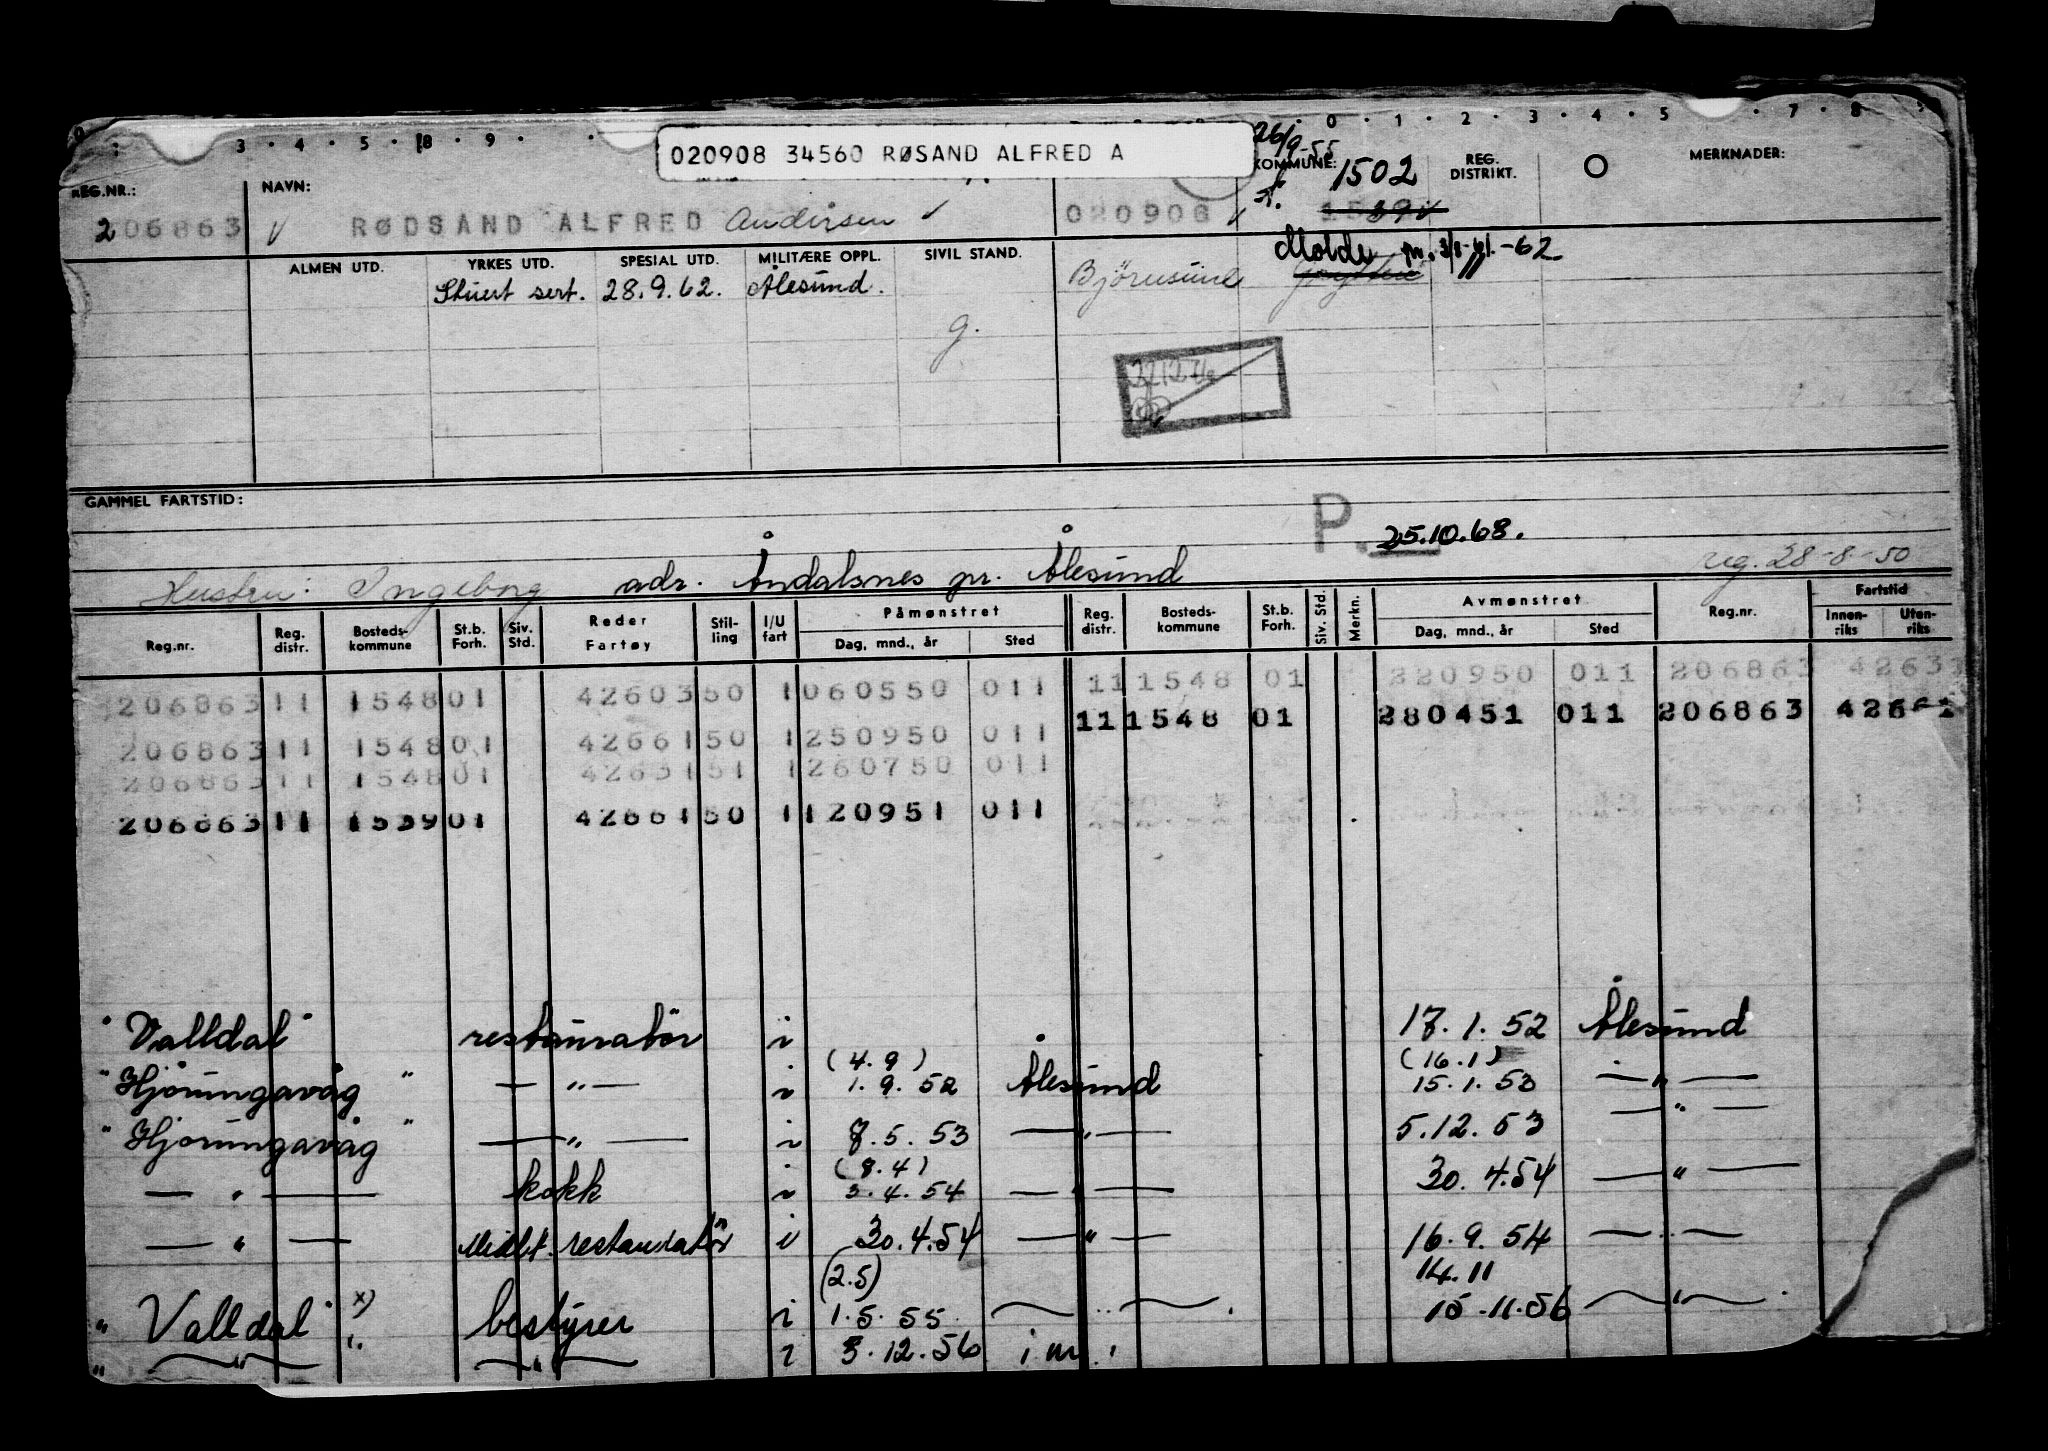 3 . 4 . 5 . 8 . 9 . . 0 . 1 . 2 . 3 . 4 . 5 . 7 . 8 .
020908 34560 RØSAND ALFRED A
26/9-55
REG.NR.: NAVN: KOMMUNE: 1502 REG. DISTRIKT. MERKNADER:
206863 RØDSAND ALFRED Andersen 020908 1539
Molde -62
ALMEN UTD. YRKES UTD. SPESIAL UTD. MILITÆRE OPPL. SIVIL STAND. Bjørnsund
Stuert sert. 28.9.62. Ålesund.
g.
GAMMEL FARTSTID:
P. 25.10.68.
Hustru: Ingeborg adr. Åndalsnes pr. Ålesund reg. 28-8-50
Reg.nr. Reg. distr. Bosteds-kommune St.b. Forh. Siv. Std. Reder Fartøy Stil-ling I/U fart Påmønstret Dag, mnd., år Sted Reg. distr. Bosteds-kommune St.b. Forh. Siv. Std. Merkn. Avmønstret Dag, mnd., år Sted Reg.nr. Fartstid Innen-riks Uten-riks
206863 11 1548 01 42603 50 1 060550 011 11 1548 01 220950 011 206863 42633
11 1548 01 280451 011 206863
206863 11 1548 01 42661 50 1 250950 011
206863 11 1548 01 42631 51 1 260750 011
206863 11 1539 01 42661 50 1 120951 011
"Valldal" restauratør i 17.1.52 Ålesund
(4.9) (16.1)
"Hjørungavåg" — " — i 1.9.52 Ålesund 15.1.53 — " —
"Hjørungavåg" — " — i 7.5.53 — " — 5.12.53 — " —
(8.4)
— " — kokk i 3.4.54 — " — 30.4.54 — " —
— " — restauratør i 30.4.54 — " — 16.9.54 — " —
(2.5) 14.11
"Valldal" x) bestyrer i 1.5.55 — " — 15.11.56 — " —
" — " — " — " — i 3.12.56 i.m.